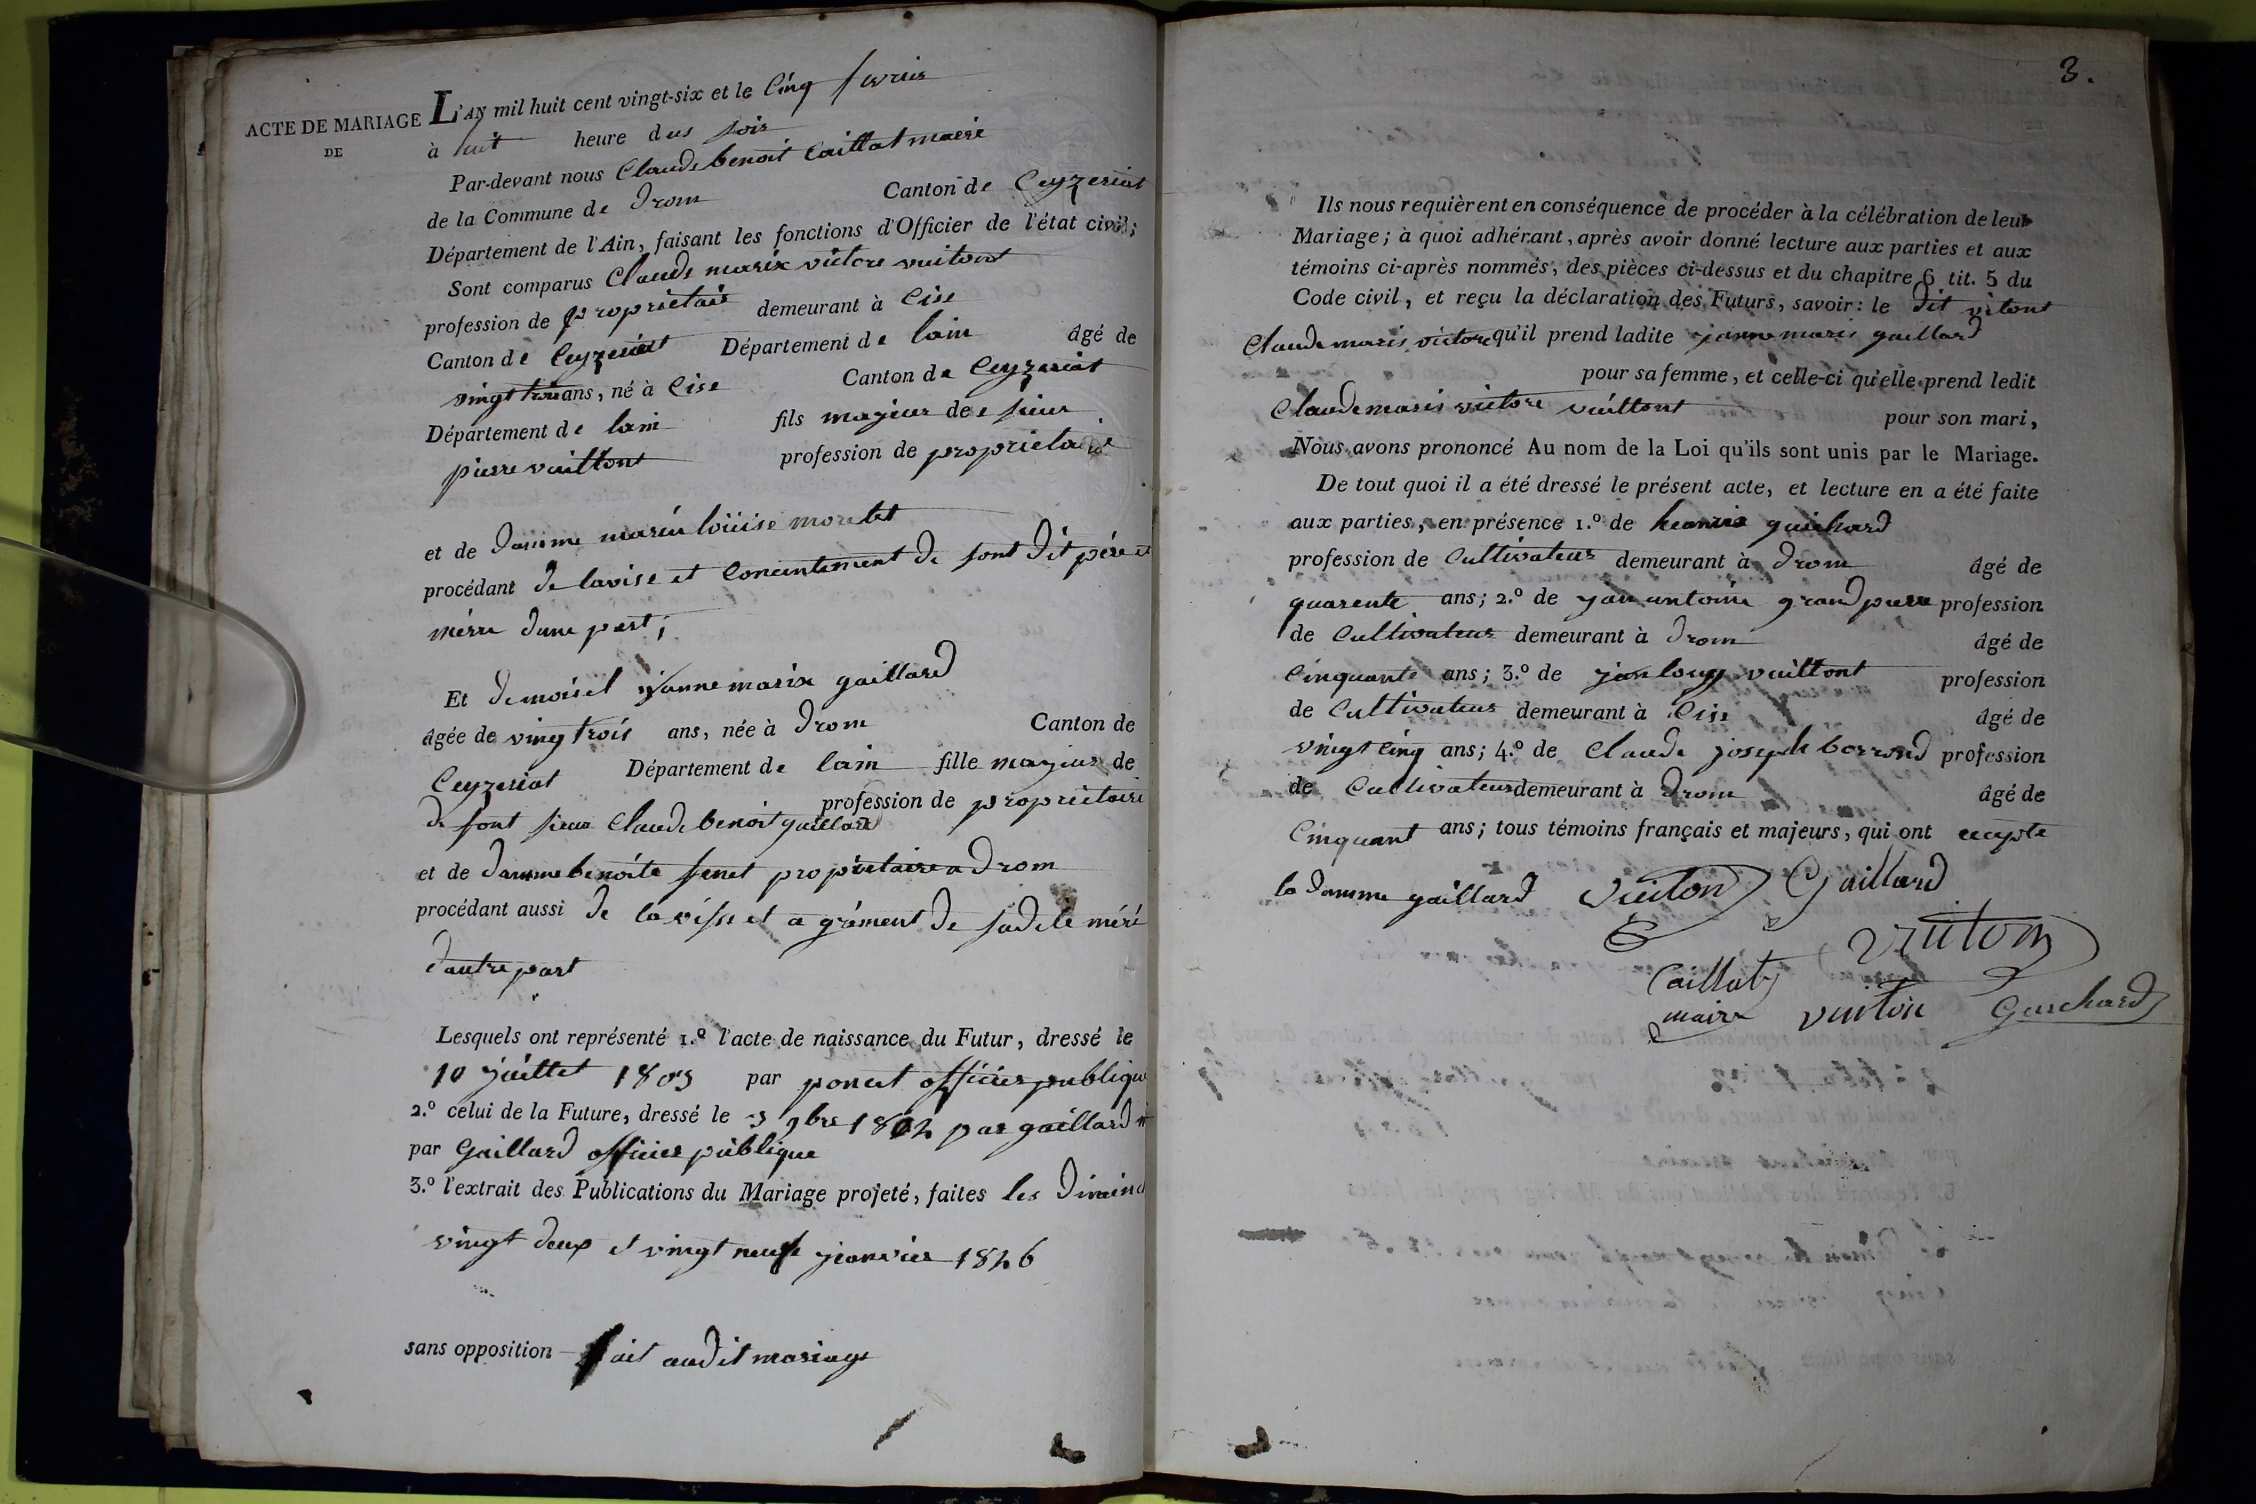 ACTE DE MARIAGE
DE
L'AN mil huit cent vingt-six et le Cinq fevrier
à huit heure dus soir
Par-devant nous Claude benoit Caillat maire
de la Commune de Drom Canton de Ceyzeriat
Département de l'Ain, faisant les fonctions d'Officier de l'état civil;
Sont comparus Claude marie victore vuitont
profession de proprietaire demeurant à Cise
Canton de Ceyzeriat Département de lain âgé de
vingt trois ans, né à Cise Canton de Ceyzeriat
Département de lain fils majeur de sieur
pierre vuittont profession de proprietaire
et de damme marie loüise moretet
procédant de lavise et Concentement de sont dit père et
mérre dune part;
Et demoisel janne marie gaillard
âgée de vingt trois ans, née à Drom Canton de
Ceyzeriat Département de lain fille majeur de
de font sieur Claude benoit gaillard profession de proprietaire
et de damme benoite fenet proprietaire a Drom
procédant aussi de la visse et a grément de sadite méré
dautre part
Lesquels ont représenté 1.º l'acte de naissance du Futur, dressé le
10 juillet 1803 par poncet officier publique
2.º celui de la Future, dressé le 3 9bre 1802 par gaillard
par Gaillard officier publique
3.º l'extrait des Publications du Mariage projeté, faites les Diminch
vingt deux et vingt neufe jeanvier 1826
sans opposition fait audit mariage
3.
Ils nous requièrent en conséquence de procéder à la célébration de leur
Mariage; à quoi adhérant, après avoir donné lecture aux parties et aux
témoins ci-après nommés, des pièces ci-dessus et du chapitre 6 tit. 5 du
Code civil, et reçu la déclaration des Futurs, savoir: le dit vitont
Claude marie victore qu'il prend ladite janne marie gaillard
pour sa femme, et celle-ci qu'elle prend ledit
Claude marie victore vuittont pour son mari,
Nous avons prononcé Au nom de la Loi qu'ils sont unis par le Mariage.
De tout quoi il a été dressé le présent acte, et lecture en a été faite
aux parties, en présence 1.º de guichard
profession de Cultivateur demeurant à Drom âgé de
quarente ans; 2.º de jan antoine grand pierre profession
de Cultivateur demeurant à Drom âgé de
Cinquante ans; 3.º de jan louy vuittont profession
de Cultivateur demeurant à Cise âgé de
vingt cinq ans; 4.º de Claude joseph borrond profession
de Cultivateur demeurant à Drom âgé de
Cinquant ans; tous témoins français et majeurs, qui ont
la damme gaillard Vuiton Gaillard
Vuiton
Caillat
maire vuiton Guichard